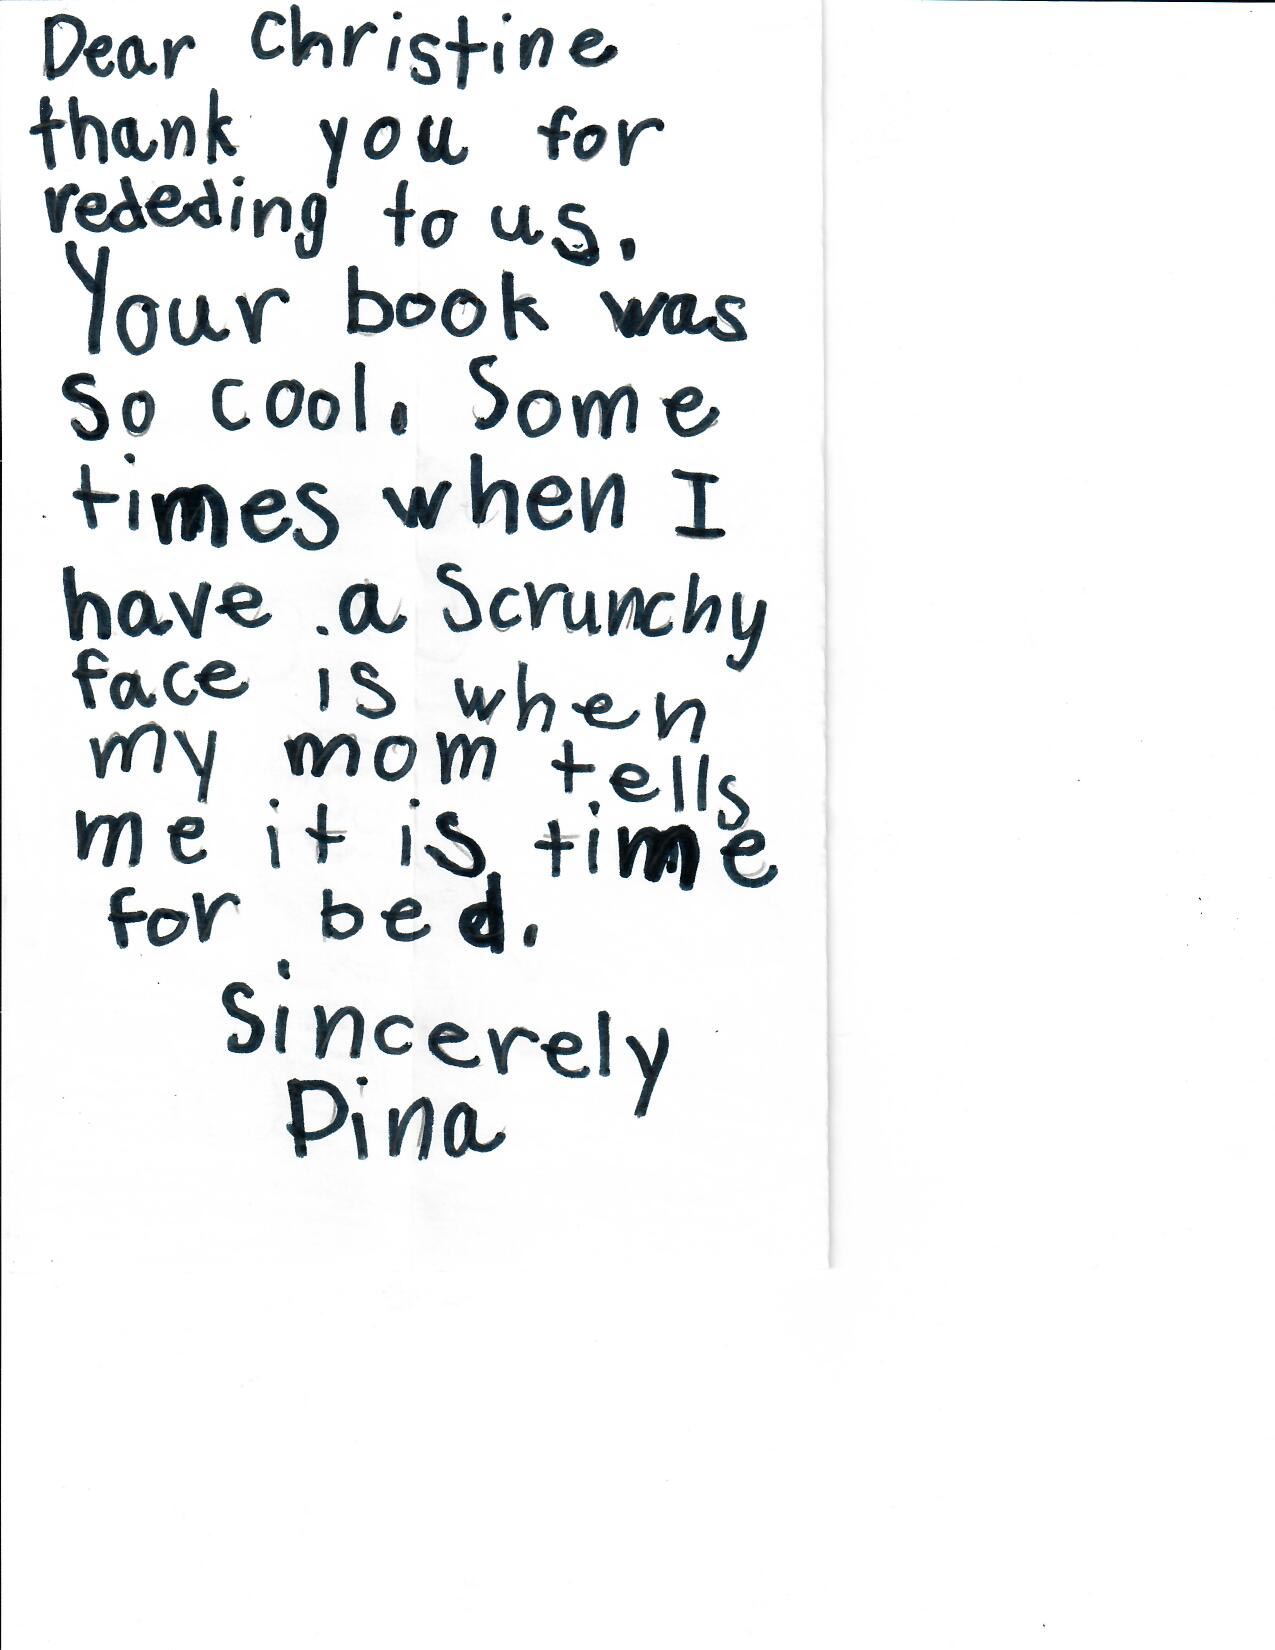 Dear Christine
thank you for
rededing to us.
Your book was
so cool. Some
times when I
have a Scrunchy
face is when
my mom tells
me it is time
for bed.
Sincerely
Dina